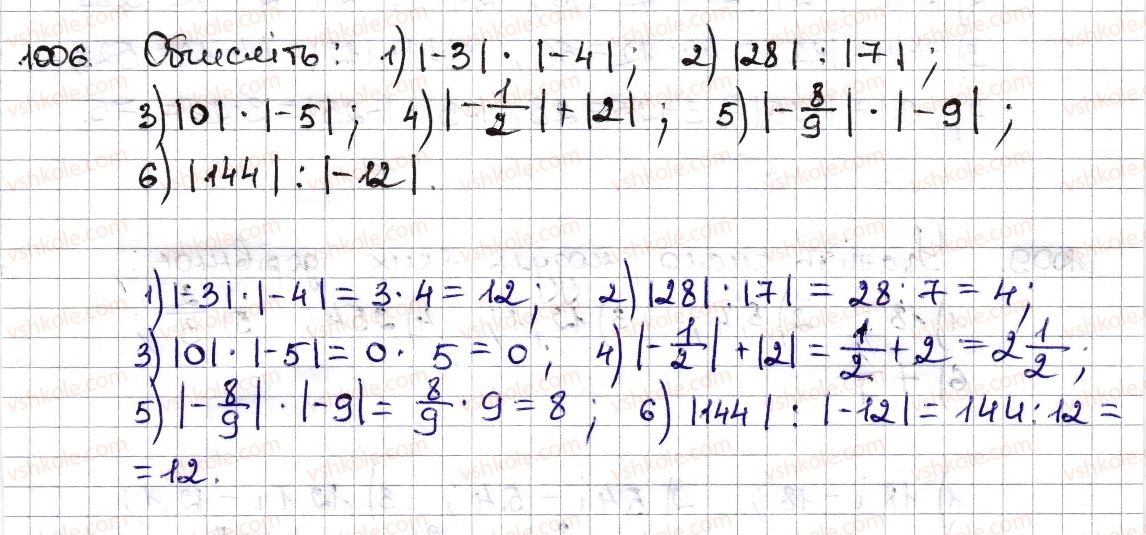 1006. Обчисліть: 1) |-3| · |-4|; 2) |28| : |7|;
3) |0| · |-5|; 4) |-1/2| + |2|; 5) |-8/9| · |-9|;
6) |144| : |-12|.
1) |-3| · |-4| = 3 · 4 = 12; 2) |28| : |7| = 28 : 7 = 4;
3) |0| · |-5| = 0 · 5 = 0; 4) |-1/2| + |2| = 1/2 + 2 = 2 1/2;
5) |-8/9| · |-9| = 8/9 · 9 = 8; 6) |144| : |-12| = 144 : 12 =
= 12.